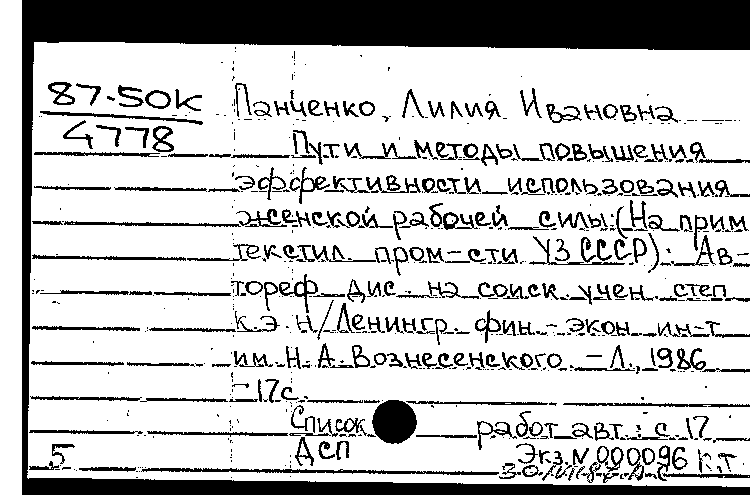 87-50К
4778
Панченко, Лилия Ивановна
Пути и методы повышения
эффективности использования
женской рабочей силы:(На прим
текстил. пром-сти УзССCР): Ав-
тореф. дис. на соиск. учен. степ
к.э.н/Ленингр. фин.-экон. ин-т
им. Н.А.Вознесенского. – Л., 1986
-17с.
Список работ авт.: с.17
ДСП Экз.N 000096 К.Т.
5